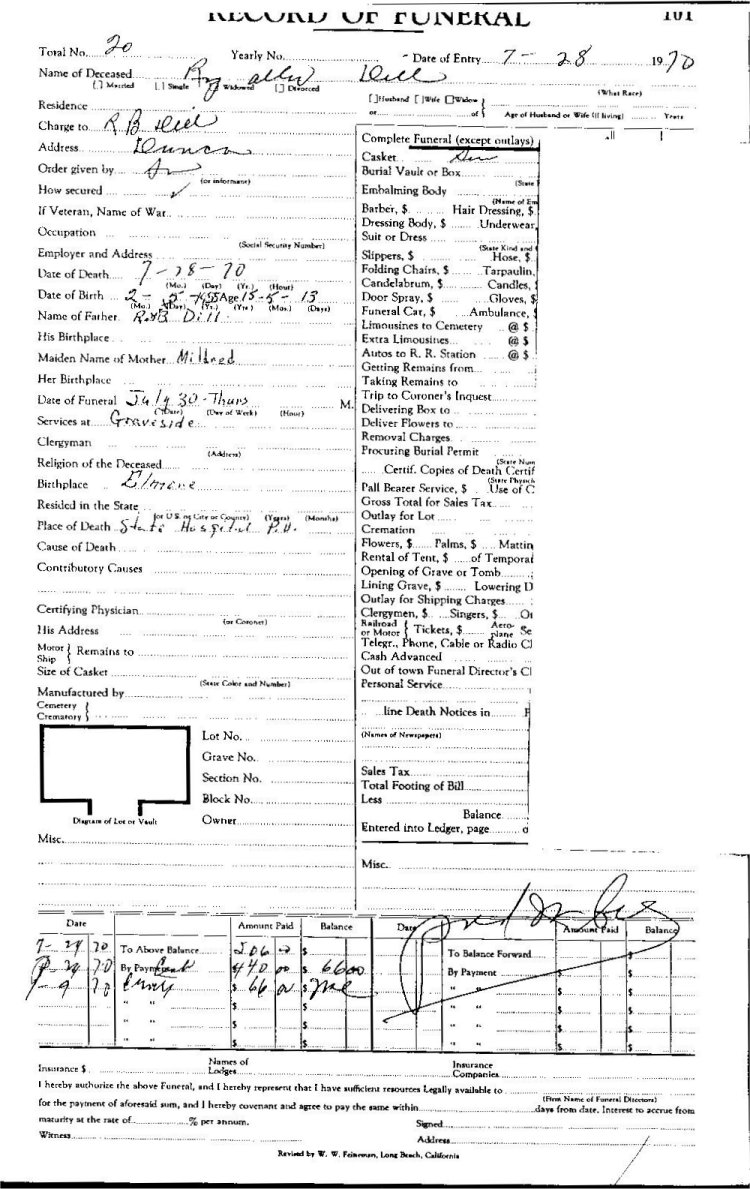 RECORD OF FUNERAL 101
Total No. 20 Yearly No. Date of Entry 7- 28 1970
Name of Deceased Roy Allen Dill
[ ] Married [ ] Single Widowed [ ] Divorced
(What Race)
[ ] Husband [ ] Wife Widow
or of Age of Husband or Wife (if living) Years
Residence
Charge to R B Dill
Address Duncan
Order given by
(or informant)
How secured ✓
If Veteran, Name of War
Occupation
(Social Security Number)
Employer and Address
Date of Death 7-28-70
(Mo.) (Day) (Yr.) (Hour)
Date of Birth 2- 5 -1955 Age 15-5-13
(Mo.) (Day) (Yr.) (Yrs) (Mos.) (Days)
Name of Father R.B Dill
His Birthplace
Maiden Name of Mother Mildred
Her Birthplace
Date of Funeral July 30-Thurs M.
(Date) (Day of Week) (Hour)
Services at Graveside
Clergyman
(Address)
Religion of the Deceased
Birthplace Elmore
Resided in the State
(or U S or City or County) (Years) (Months)
Place of Death State Hospital P.V.
Cause of Death
Contributory Causes
Certifying Physician
(or Coroner)
His Address
Motor
Ship
Remains to
Size of Casket
(State Color and Number)
Manufactured by
Cemetery
Crematory
Lot No.
Grave No.
Section No.
Block No.
Owner
Diagram of Lot or Vault
Misc.
Complete Funeral (except outlays)
Casket
Burial Vault or Box
(State
Embalming Body
(Name of Em
Barber, $ Hair Dressing, $
Dressing Body, $ Underwear,
Suit or Dress
(State Kind and
Slippers, $ Hose, $
Folding Chairs, $ Tarpaulin,
Candelabrum, $ Candles,
Door Spray, $ Gloves, $
Funeral Car, $ Ambulance,
Limousines to Cemetery @ $
Extra Limousines @ $
Autos to R. R. Station @ $
Getting Remains from
Taking Remains to
Trip to Coroner's Inquest
Delivering Box to
Deliver Flowers to
Removal Charges
Procuring Burial Permit
(State Num
Certif. Copies of Death Certif
(State Physch
Pall Bearer Service, $ Use of C
Gross Total for Sales Tax
Outlay for Lot
Cremation
Flowers, $ Palms, $ Mattin
Rental of Tent, $ of Temporal
Opening of Grave or Tomb
Lining Grave, $ Lowering D
Outlay for Shipping Charges
Clergymen, $ Singers, $
Railroad
or Motor
Tickets, $ Aero-
plane Se
Telegr., Phone, Cable or Radio
Cash Advanced
Out of town Funeral Director's
Personal Service
line Death Notices in
(Names of Newspapers)
Sales Tax
Total Footing of Bill
Less
Balance
Entered into Ledger, page
Misc.
Date Amount Paid Balance Date Amount Paid Balance
70 To Above Balance 506 $ To Balance Forward $
70 By Payment $440 00 $ 66 00 By Payment $ $
70 $ 66 $ " " $ $
" " $ $ " " $ $
" " $ $ " " $ $
" " $ $ " " $ $
Insurance $ Names of
Lodges
Insurance
Companies
I hereby authorize the above Funeral, and I hereby represent that I have sufficient resources Legally available to
(Firm Name of Funeral Directors)
for the payment of aforesaid sum, and I hereby covenant and agree to pay the same within days from date. Interest to accrue from
maturity at the rate of % per annum. Signed
Witness Address
Revised by W. W. Feineman, Long Beach, California